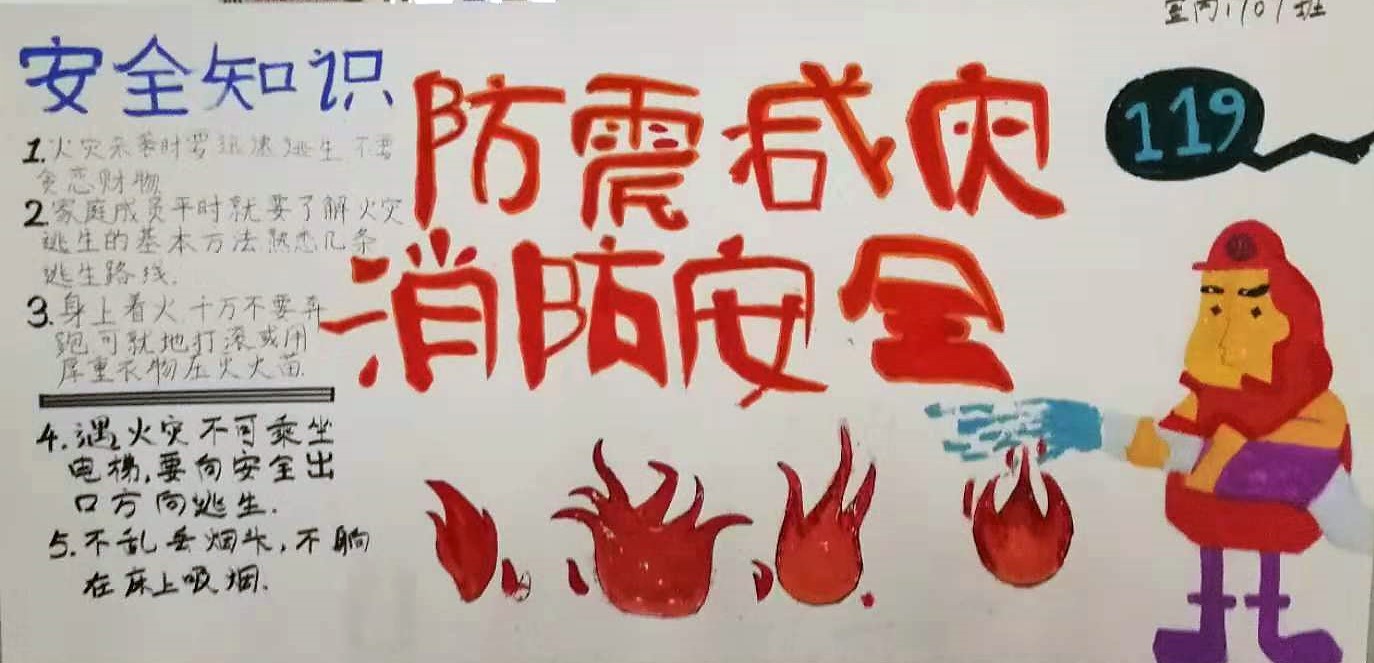 室内1701班
安全知识
1.火灾来袭时要迅速逃生 不要
贪恋财物
2家庭成员平时就要了解火灾
逃生的基本方法熟悉几条
逃生路线.
3.身上着火 千万不要奔
跑可就地打滚或用
厚重衣物压灭火苗.
4.遇火灾不可乘坐
电梯,要向安全出
口方向逃生.
5.不乱丢烟头,不躺
在床上吸烟.
防震减灾
消防安全
119